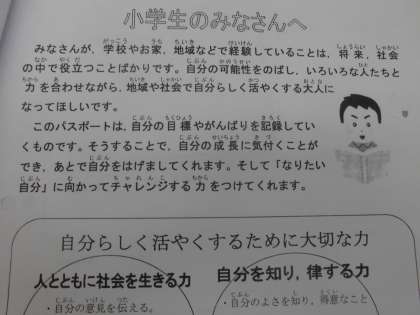 小学生のみなさんへ
みなさんが、学校やお家、地域などで経験していることは、将来、社会
の中で役立つことばかりです。自分の可能性をのばし、いろいろな人たちと
力を合わせながら、地域や社会で自分らしく活やくする大人に
なってほしいです。
このパスポートは、自分の目標やがんばりを記録してい
くものです。そうすることで、自分の成長に気付くことが
でき、あとで自分をはげましてくれます。そして「なりたい
自分」に向かってチャレンジする力をつけてくれます。
自分らしく活やくするために大切な力
人とともに社会を生きる力
自分を知り，律する力
・自分の意見を伝える。
・自分のよさを知り，得意なこと